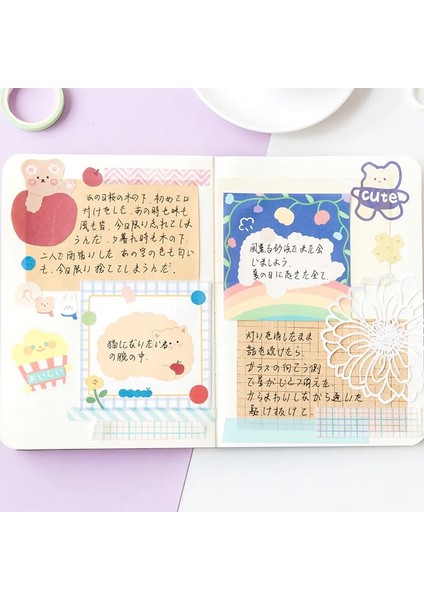 あの日桜の木の下、初めて口
付けをした。あの時も味も
風も皆、今日限り忘れてしま
うんだ。夕暮れ時も木の下
二人で雨宿りした あの空の色も匂い
も、今日限り捨ててしまうんだ.
猫になりたい、君
の腕の中.
おいしい
cute
いましょう。
夏の日に起きた全て。
灯りを消したまま
話を続けたら
ガラスの向こう側
で星がひとつ消えた
からまわりしながら通りを
駆け抜けて